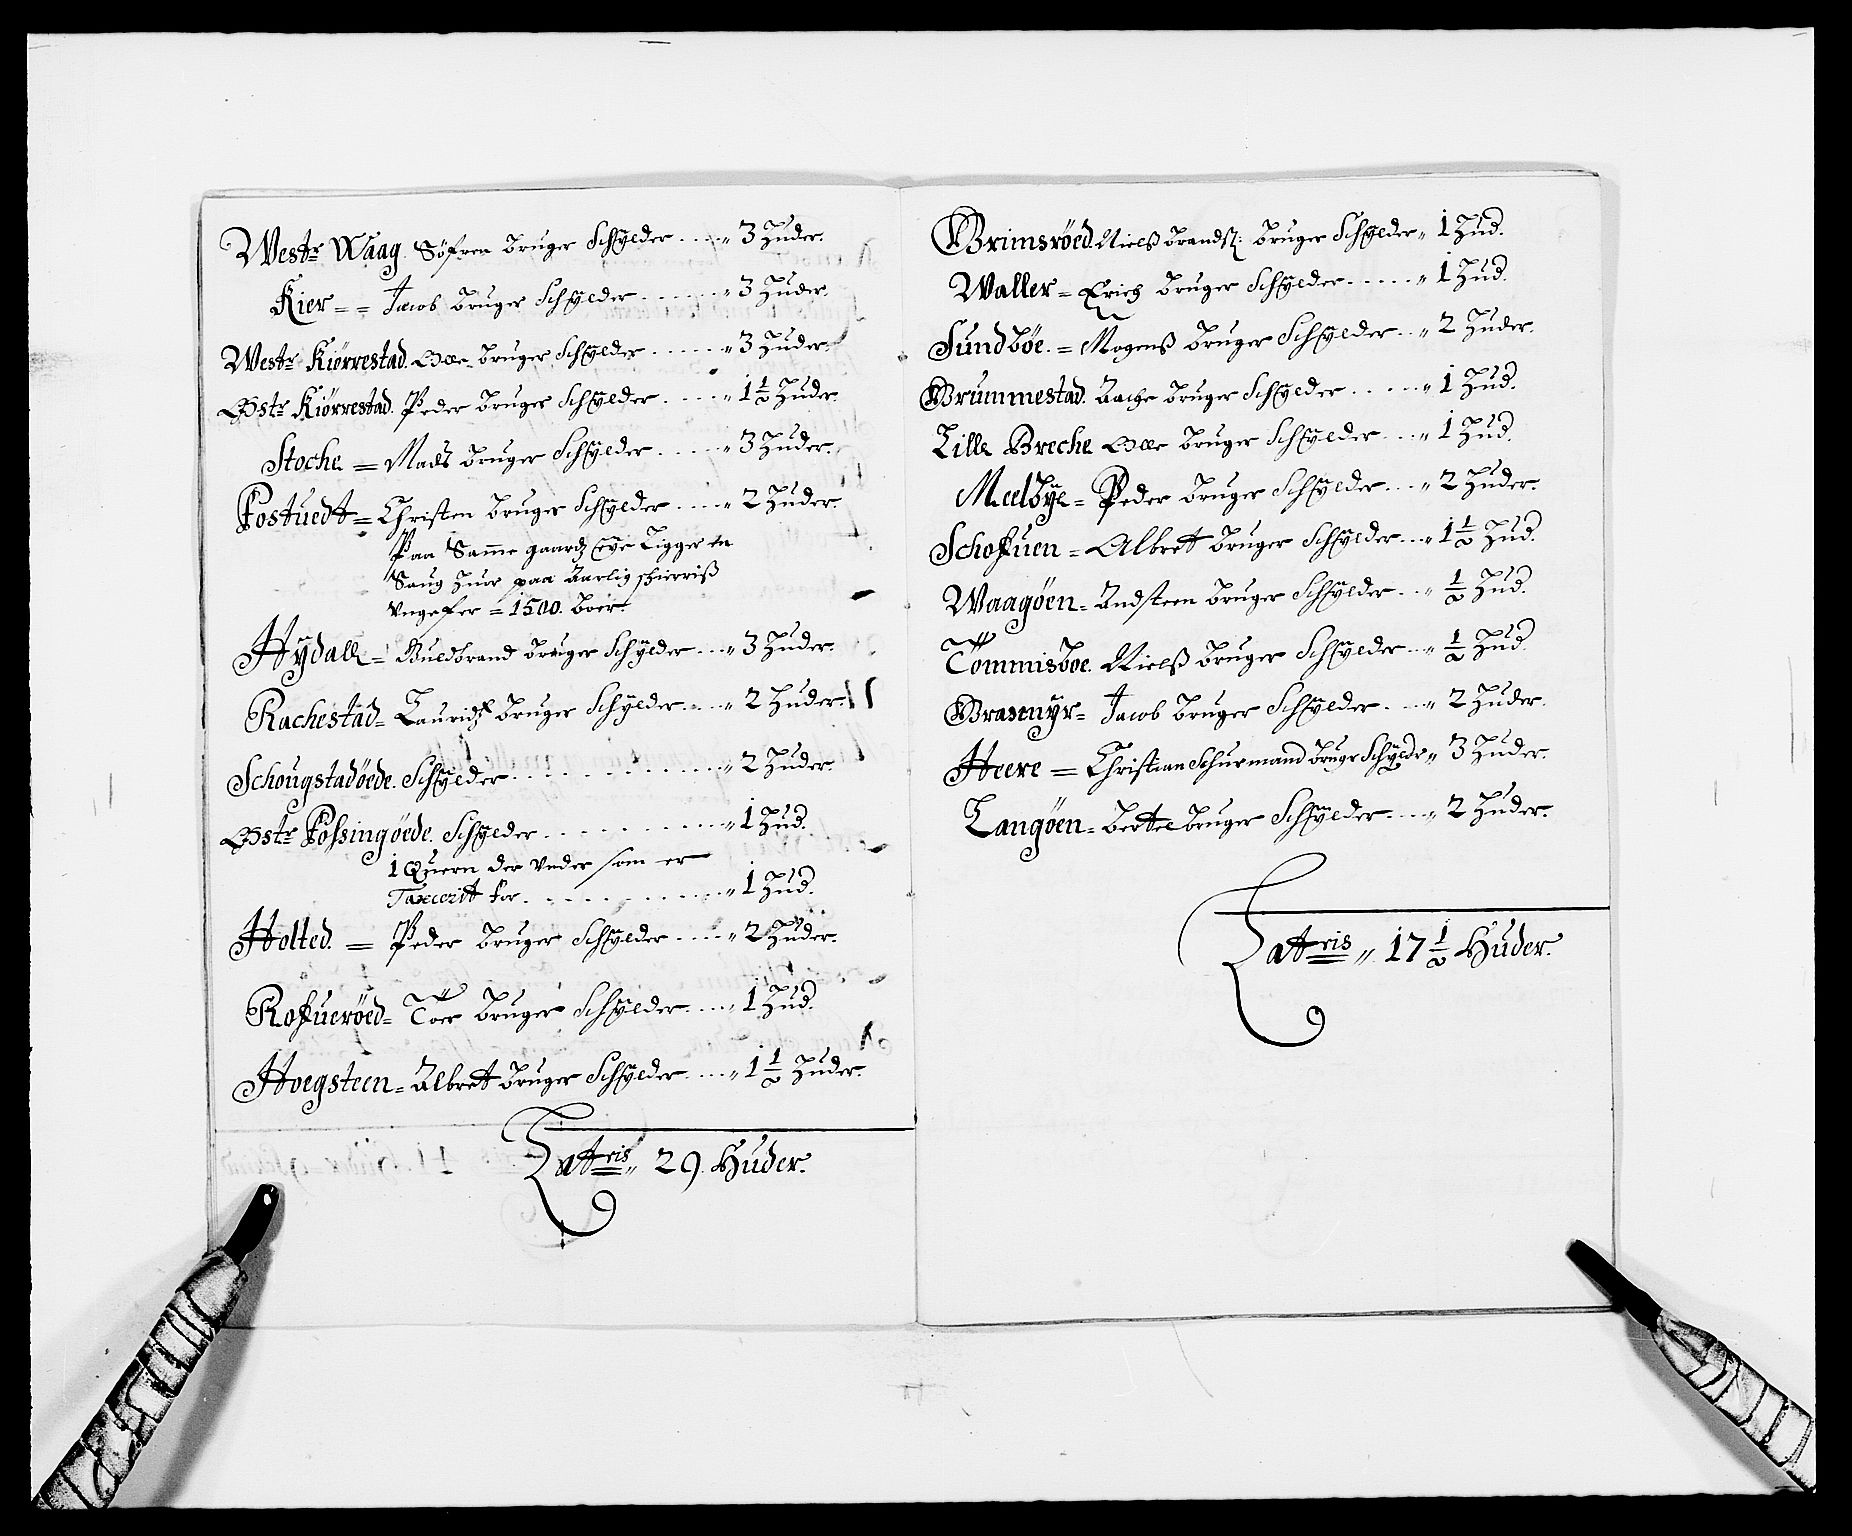 Westr Waag. Söfren bruger Schÿlder .... „ 3 Huder.
Kier = = Jacob bruger Schÿlder ...... „ 3 Huder.
Westr Kiørrestad. Olle bruger Schÿlder ..... „ 3 Huder.
Østr Kiørrestad. Peder bruger Schÿlder .... „ 1 1/2 Huder.
Stoche = Mads bruger Schÿlder ..... „ 3 Huder.
Fostuedt = Christen bruger Schÿlder .... „ 2 Huder.
Paa Samme gaardz Eye Ligger en
Saug Huor paa Aarlig schierriß
Vngefer = 1500. boer.
Hÿdall = Guldbrand bruger Schÿlder ... „ 3 Huder.
Rachestad = Lauridz bruger Schÿlder ... „ 2 Huder.
Schougstadöede. Schÿlder ............ „ 2 Huder.
Østr Fossingöede. Schÿlder .......... „ 1 Hud.
1 Quern der Vnder som er
Taxcerit for ............ „ 1 Hud.
Holted. = Peder bruger Schÿlder .... „ 2 Huder.
Rofueröed = Toer bruger Schÿlder .... „ 1 Hud.
Hoegsteen = Albret bruger Schÿlder .... „ 1 1/2 Huder.
Latris „ 29. Huder.
Grimsröed. Nielß brandß: bruger Schÿlder „ 1 Hud.
Waller = Erich bruger Schÿlder ..... „ 1 Hud.
Sundböe. = Mogenß bruger Schÿlder ... „ 2 Huder.
Grummestad. Aache bruger Schÿlder ..... „ 1 Hud.
Lille Breche Olle bruger Schÿlder ... „ 1 Hud.
Meelbÿe = Peder bruger Schÿlder ... „ 2 Huder.
Schofuen = Albret bruger Schÿlder ... „ 1 1/2 Hud.
Waagöen = Andsteen bruger Schÿlder ... „ 1/2 Hud.
Tommisboe. Nielß bruger Schÿlder ... „ 1/2 Hud.
Grasmyr = Jacob bruger Schÿlder .... „ 2 Huder.
Heere = Christian Schurmand bruger Schÿldr „ 3 Huder.
Langöen = Bertel bruger Schÿlder .... „ 2 Huder.
Latris „ 17 1/2 Huder.